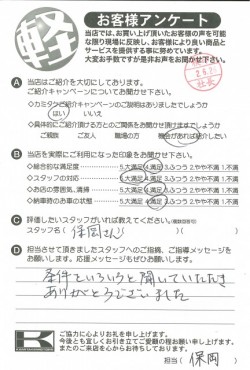 軽
お客様アンケート
当店では、お買い頂いたお客様の声を可能
な限り現場に反映し、お客様により良い商品と
サービスを提供する事に努めています。
大変お手数ですが是非お声をお聞かせ下さい。
社長
A 当店はご紹介を大切にしております。
ご紹介キャンペーンについてお聞かせ下さい。
はい いいえ
ご親族 ご友人 職場の方 機会があれば紹介したい
B 当店を実際にご利用になった印象をお聞かせ下さい。
◇総合的な満足度 5.大満足 4.満足 3.ふつう 2.やや不満 1.不満
◇スタッフの対応 5.大満足 4.満足 3.ふつう 2.やや不満 1.不満
◇お店の雰囲気、清掃 5.大満足 4.満足 3.ふつう 2.やや不満 1.不満
◇納車時のお車の状態 5.大満足 4.満足 3.ふつう 2.やや不満 1.不満
C 評価したいスタッフがいれば教えてください。
スタッフ名( 保岡さん )( )
D 担当させて頂きましたスタッフへのご指摘、ご指導メッセージを
お願いします。応援メッセージもぜひお願いします。
条件といろいろと聞いていただき
ありがとうございました
K
ご協力に心よりお礼を申し上げます。
今後とも宜しくお引き立てご愛顧の程お願い申し上げます。
またのご来店を心からお待ちしております。
担当( 保岡 )